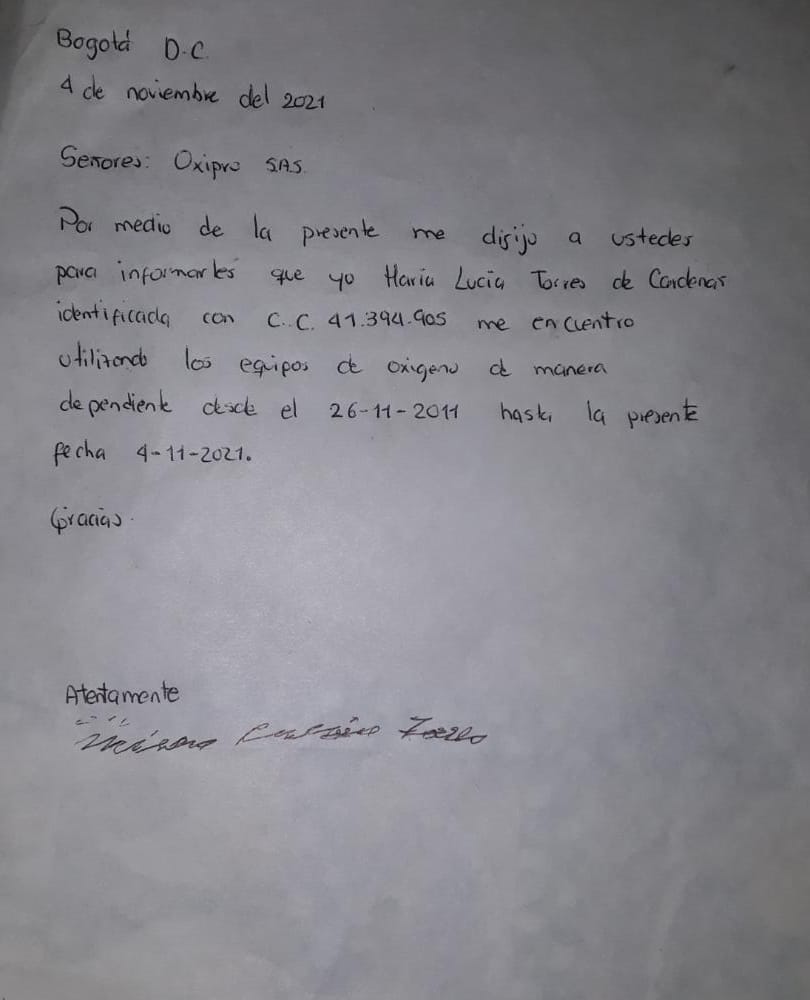 Bogotá D.C.
4 de noviembre del 2021
Señores: Oxipro S.A.S.
Por medio de la presente me dirijo a ustedes
para informarles que yo María Lucía Torres de Cardenas
identificada con C.C. 41.394.905 me encuentro
utilizando los equipos de oxigeno de manera
dependiente desde el 26-11-2011 hasta la presente
fecha 4-11-2021.
Gracias.
Atentamente